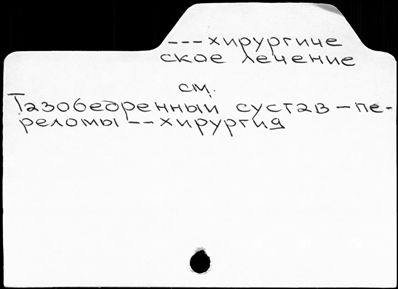 ---хирургиче
ское лечение
см.
Тазобедренный сустав-пе-
реломы--хирургия